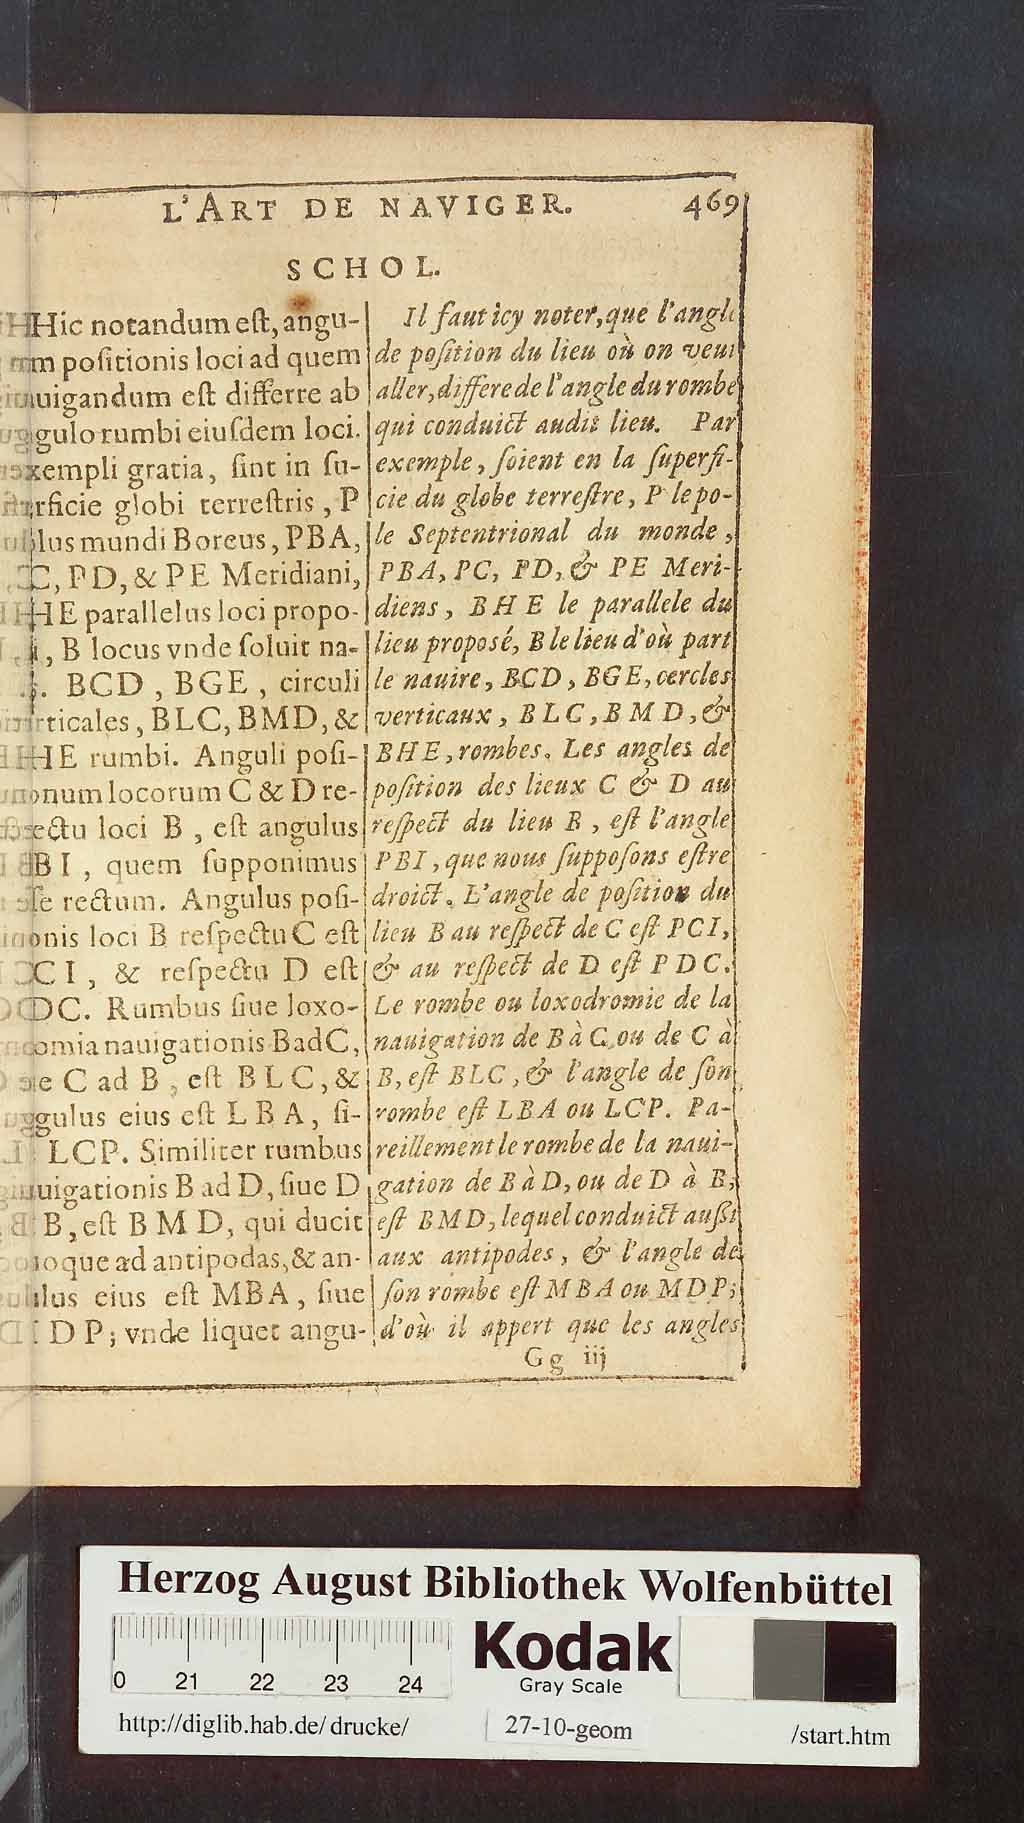 L'ART DE NAVIGER. 469
SCHOL.
Hic notandum eſt, angu-
m poſitionis loci ad quem
uigandum eſt differre ab
gulo rumbi eiuſdem loci.
xempli gratia, ſint in ſu-
rficie globi terreſtris, P
lus mundi Boreus, PBA,
C, PD, & PE Meridiani,
HE parallelus loci propo-
i, B locus vnde ſoluit na-
. BCD, BGE, circuli
rticales, BLC, BMD, &
HE rumbi. Anguli poſi-
onum locorum C & D re-
ectu loci B, eſt angulus
BI, quem ſupponimus
ſe rectum. Angulus poſi-
onis loci B reſpectu C eſt
CI, & reſpectu D eſt
DC. Rumbus ſiue loxo-
omia nauigationis B ad C,
e C ad B, eſt BLC, &
gulus eius eſt LBA, ſi-
LCP. Similiter rumbus
uigationis B ad D, ſiue D
B, eſt BMD, qui ducit
oque ad antipodas, & an-
lus eius eſt MBA, ſiue
DP; vnde liquet angu-
Il faut icy noter, que l'angle
de poſition du lieu où on veut
aller, differe de l'angle du rombe
qui conduict audit lieu. Par
exemple, ſoient en la ſuperfi-
cie du globe terreſtre, P le po-
le Septentrional du monde,
PBA, PC, PD, & PE Meri-
diens, BHE le parallele du
lieu propoſé, B le lieu d'où part
le nauire, BCD, BGE, cercles
verticaux, BLC, BMD, &
BHE, rombes. Les angles de
poſition des lieux C & D au
reſpect du lieu B, eſt l'angle
PBI, que nous ſuppoſons eſtre
droict. L'angle de poſition du
lieu B au reſpect de C eſt PCI,
& au reſpect de D eſt PDC.
Le rombe ou loxodromie de la
nauigation de B à C, ou de C à
B, eſt BLC, & l'angle de ſon
rombe eſt LBA ou LCP. Pa-
reillement le rombe de la naui-
gation de B à D, ou de D à B,
eſt BMD, lequel conduict auſſi
aux antipodes, & l'angle de
ſon rombe eſt MBA ou MDP;
d'où il appert que les angles
Gg iij
Herzog August Bibliothek Wolfenbüttel
0 21 22 23 24
Kodak
Gray Scale
http://diglib.hab.de/drucke/ 27-10-geom /start.htm